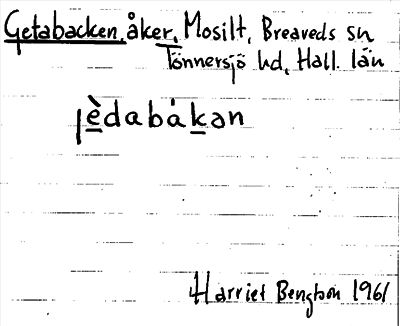 Getabacken, åker, Mosilt, Breaveds sn
Tönnersjö hd, Hall. län
jèdabákan
Harriet Bengtson 1961